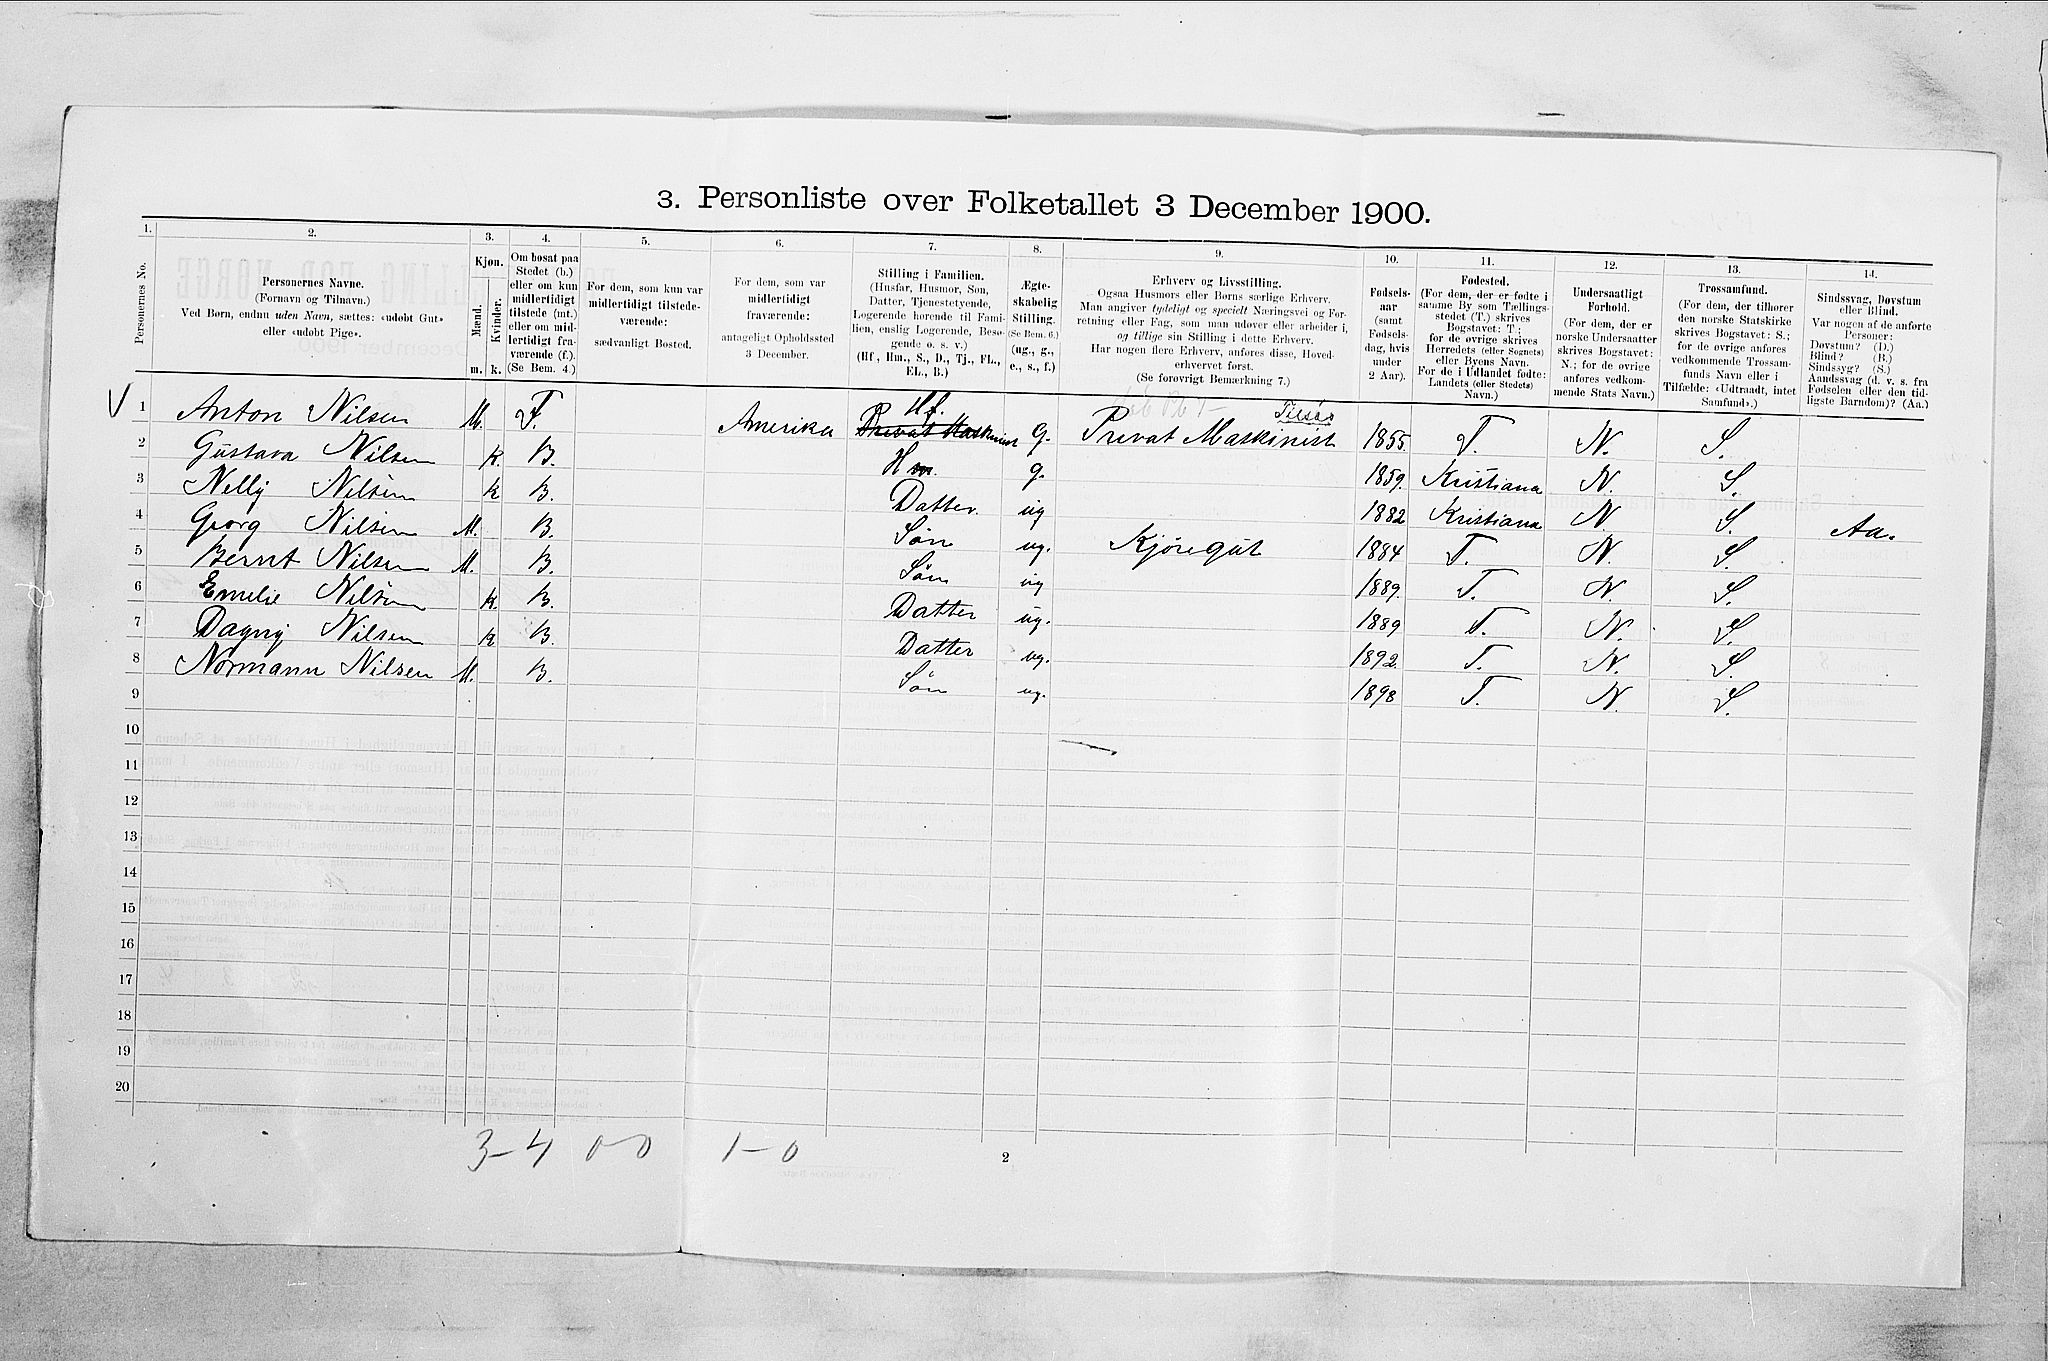 3. Personliste over Folketallet 3 December 1900.
1. 2. 3. 4. 5. 6. 7. 8. 9. 10. 11. 12. 13. 14.
Personernes No.
Personernes Navne.
(Fornavn og Tilnavn.)
Ved Børn, endnu uden Navn, sættes: «udøbt Gut»
eller «udøbt Pige».
Kjøn.
Mænd.
Kvinder.
m. k.
Om bosat paa
Stedet (b.)
eller om kun
midlertidigt
tilstede (mt.)
eller om mid-
lertidigt fra-
værende (f.).
(Se Bem. 4.)
For dem, som kun var
midlertidigt tilstede-
værende:
sædvanligt Bosted.
For dem, som var
midlertidigt
fraværende:
antageligt Opholdssted
3 December.
Stilling i Familien.
(Husfar, Husmor, Søn,
Datter, Tjenestetyende,
Logerende hørende til Fami-
lien, enslig Logerende, Besø-
gende o. s. v.)
(Hf., Hm., S., D., Tj., FL.,
EL., B.)
Ægte-
skabelig
Stilling.
(Se Bem. 6.)
(ug., g.,
e., s., f.)
Erhverv og Livsstilling.
Ogsaa Husmors eller Børns særlige Erhverv.
Man angiver tydeligt og specielt Næringsvei og For-
retning eller Fag, som man udøver eller arbeider i,
og tillige sin Stilling i dette Erhverv.
Har nogen flere Erhverv, anføres disse, Hoved-
erhvervet først.
(Se forøvrigt Bemerkning 7.)
Fødsels-
aar
(samt
Fødsels-
dag, hvis
under
2 Aar).
Fødested.
(For dem, der er fødte i
samme By som Tællings-
stedet (T.) skrives
Bogstavet: T;
for de øvrige skrives
Herredets (eller Sognets)
eller Byens Navn.
For de i Udlandet fødte:
Landets (eller Stedets)
Navn.)
Undersaatligt
Forhold.
(For dem, der er
norske Undersaatter
skrives Bogstavet:
N.; for de øvrige
anføres vedkom-
mende Stats Navn.)
Trossamfund.
(For dem, der tilhører
den norske Statskirke
skrives Bogstavet: S.;
for de øvrige anføres
vedkommende Trossam-
funds Navn eller i
Tilfælde: «Udtraadt, intet
Samfund».)
Sindssvag, Døvstum
eller Blind.
Var nogen af de anførte
Personer:
Døvstum? (D.)
Blind? (B.)
Sindssyg? (S.)
Aandssvag (d. v. s. fra
Fødselen eller den tid-
ligste Barndom)? (Aa.)
1 Anton Nilsen M. F. Amerika Hf. Privat Maskinist G. Privat Maskinist 1855. T. N. S.
2 Gustava Nilsen k. B. Hm. g. 1859. Kristiana N. S.
3 Nelly Nilsen k B. Datter. ug 1882 Kristiana N. S. Aa.
4 Georg Nilsen M. B. Søn ug. Kjøregut 1884 T. N. S.
5 Bernt Nilsen M. B. Søn ug 1889. T. N. S.
6 Emelie Nilsen k. B. Datter ug. 1889 T. N. S.
7 Dagny Nilsen k B. Datter ug. 1892. T. N. S.
8 Normann Nilsen M. B. Søn ug. 1898 T. N. S.
9
10
11
12
13
14
15
16
17
18
19
20
3-4 0-0 1-0
2